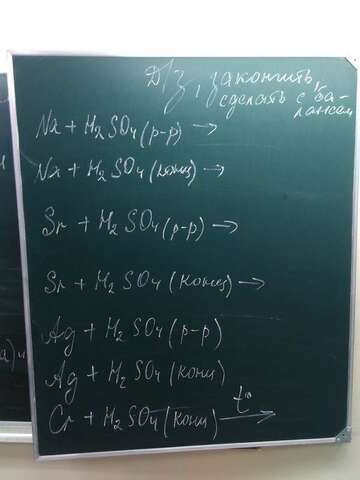 Д/з, закончить,
сделать с ба-
лансом
Na + H2SO4 (р-р) →
Na + H2SO4 (конц) →
Sr + H2SO4 (р-р) →
Sr + H2SO4 (конц) →
Ag + H2SO4 (р-р)
Ag + H2SO4 (конц)
Cr + H2SO4 (конц) t° →